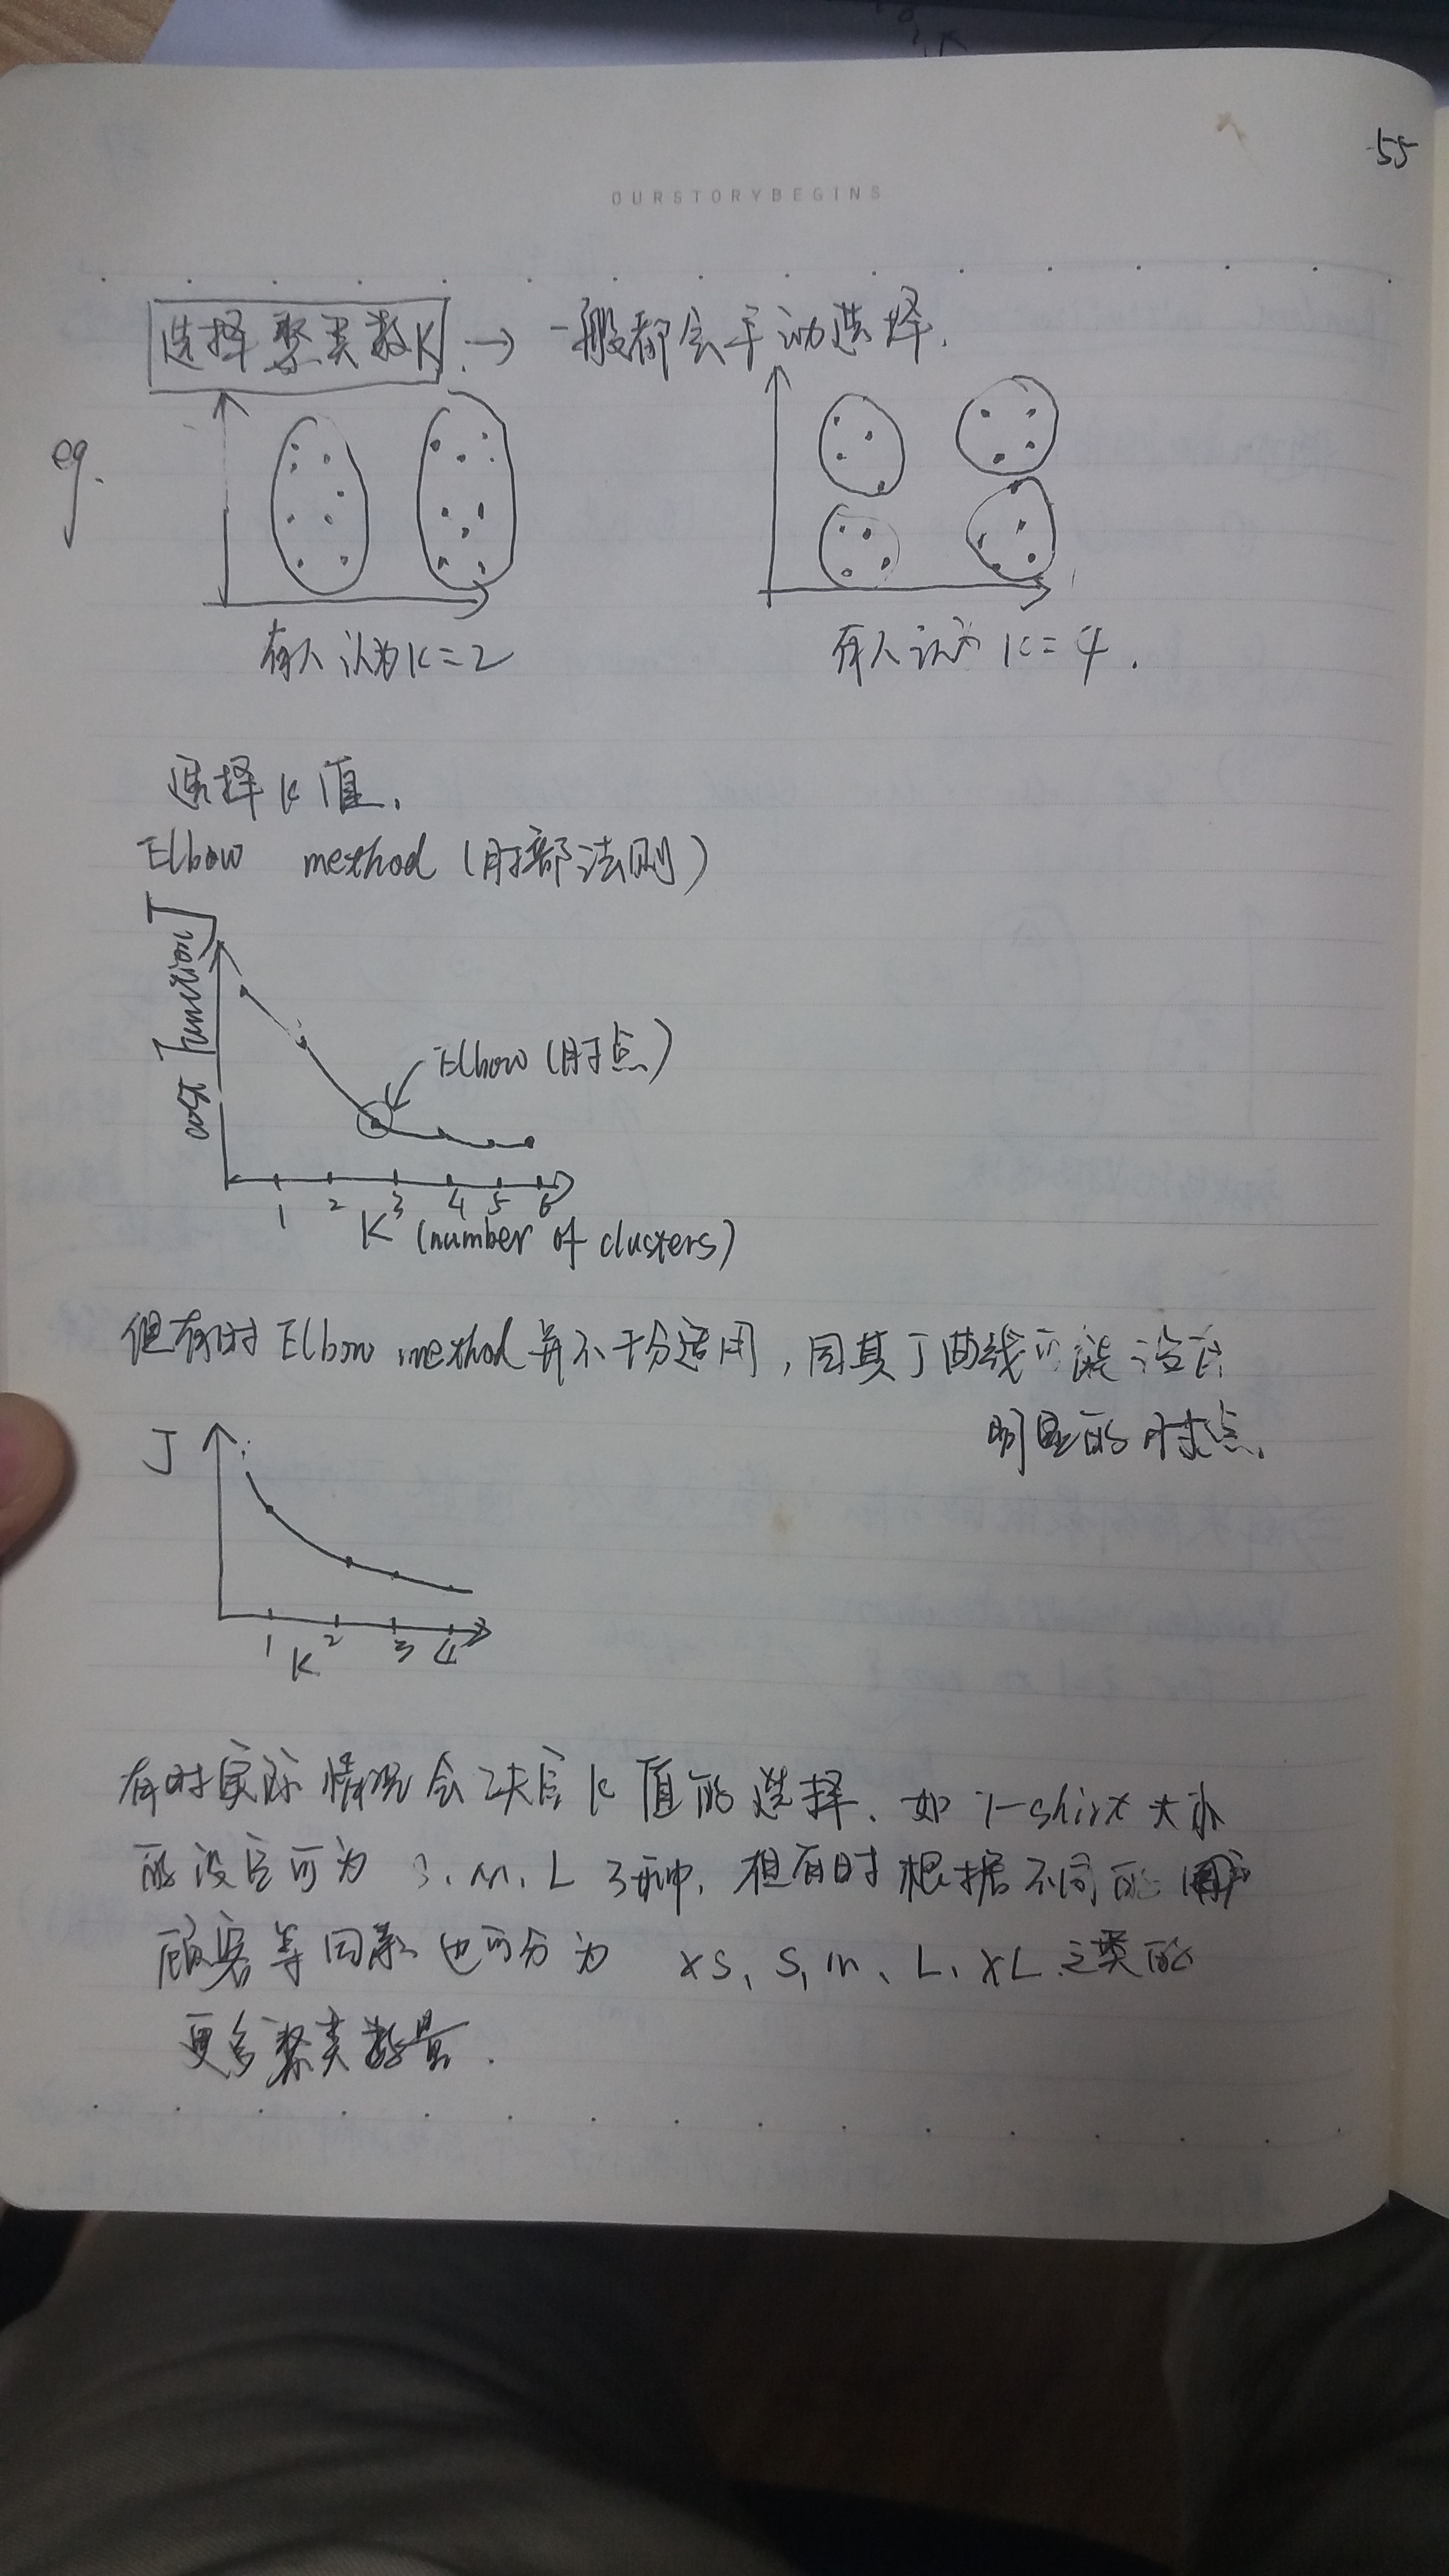 55
OURSTORYBEGINS
选择聚类数K → 一般都会手动选择.
eg.
有人认为K=2
有人认为K=4.
选择K值.
Elbow method (肘部法则)
cost function J
Elbow (肘点)
1 2 3 4 5 6
K (number of clusters)
但有时Elbow method并不十分适用,因其J曲线可能没有
明显的肘点.
J
1 2 3 4
K
有时实际情况会决定K值的选择.如T-shirt大小
的设定可为 S、M、L 3种,但有时根据不同的
顾客等因素也可分为 XS、S、M、L、XL之类的
更多聚类数量.